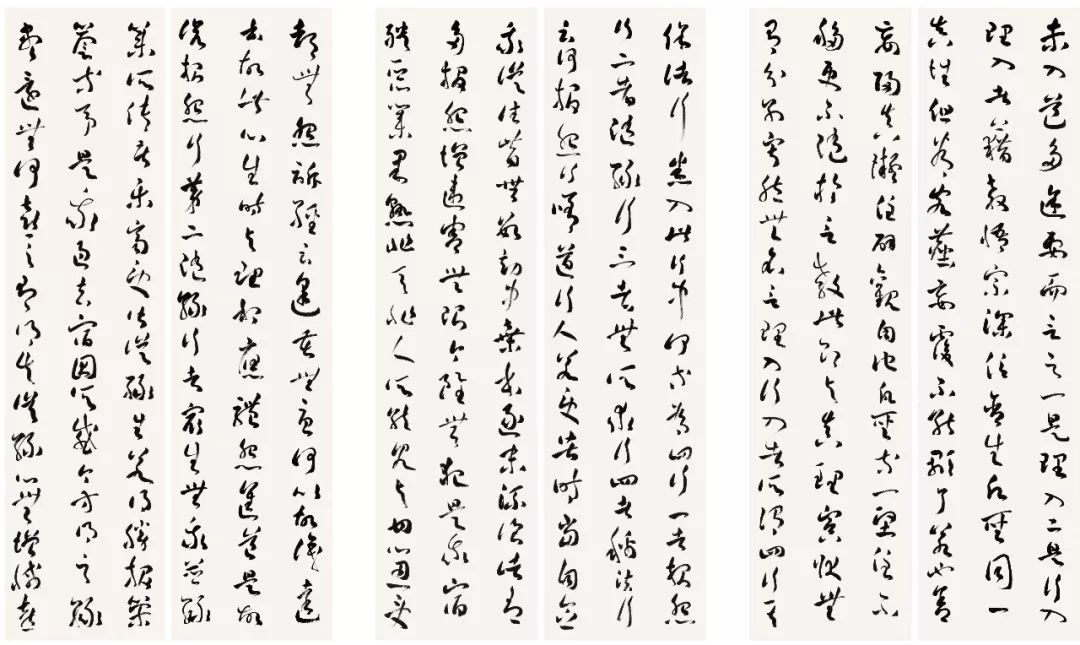 夫入道多途要而言之一是理入二是行入
理入者藉教悟宗深信含生凡聖同一
真性但為客塵妄覆不能顯了若也舍
妄歸真凝住壁觀自他凡聖等一堅住不
移更不隨於言教此即與真理冥狀無
有分別寂然無名之理入行入者所謂四行其
餘諸行悉入此行中何等為四行一者報怨
行二者隨緣行三者無所求行四者稱法行
云何報怨行修道行人若受苦時當自念
我從往昔無數劫中棄本逐末流浪諸有
多報怨憎違害無限今雖無犯是我宿
殃惡業果熟非天非人所能見與甘心忍受
都無怨訴經云逢苦無憂何以故識達
故此心生時與理相應體怨進道是故
說報怨行第二隨緣行者眾生無我並緣
業所傳苦樂齊受皆從緣生若得勝報榮
譽等事是我過去宿因所感今方得之緣
盡還無何喜之有得失從緣心無增減喜